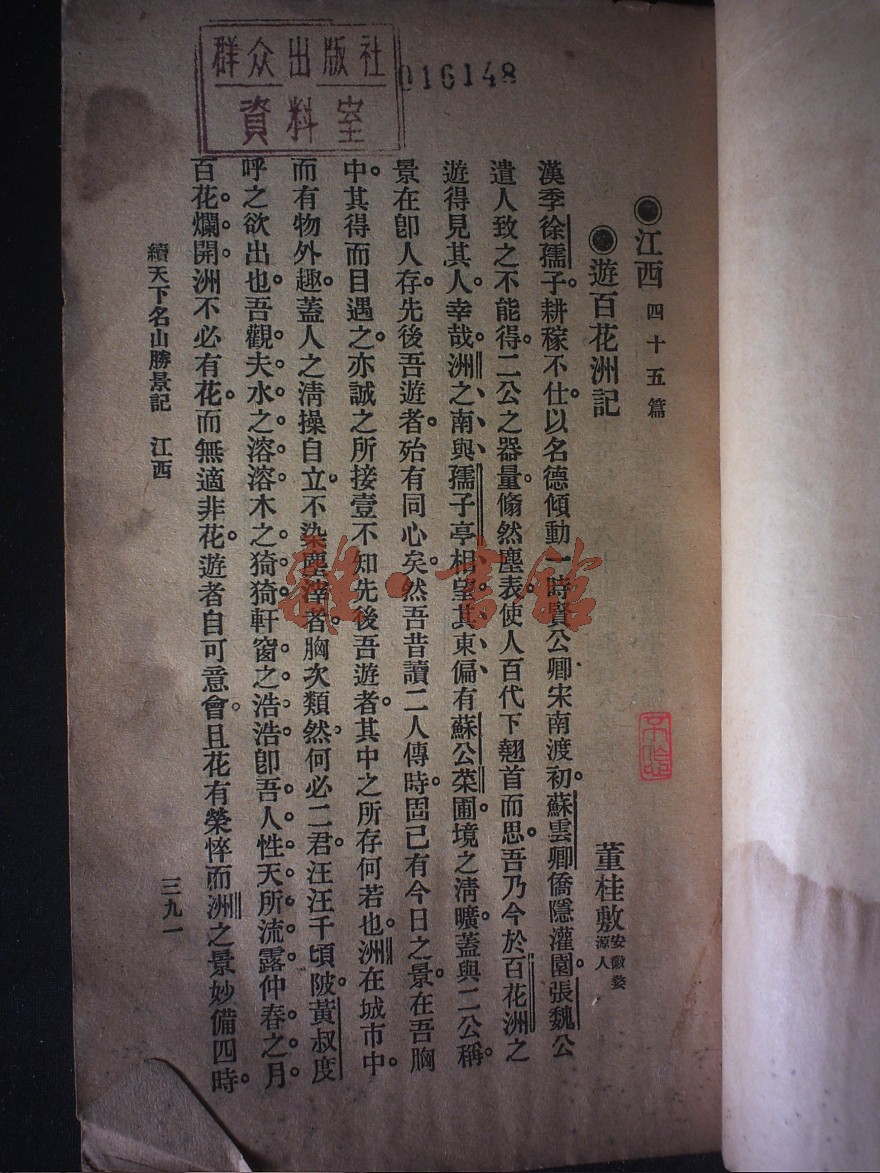 群众出版社
資料室
016148
◉江西 四十五篇
◉遊百花洲記 董桂敷 安徽婺源人
漢季徐孺子。耕稼不仕。以名德傾動一時賢公卿宋南渡初。蘇雲卿僑隱灌園。張魏公
遣人致之不能得。二公之器量。翛然塵表。使人百代下翹首而思。吾乃今於百花洲之
遊得見其人。幸哉。洲之南與孺子亭相望。其東偏有蘇公菜圃。境之清曠。蓋與二公稱。
景在卽人存。先後吾遊者。殆有同心矣。然吾昔讀二人傳時。固已有今日之景。在吾胸
中。其得而目遇之。亦誠之所接壹不知先後吾遊者。其中之所存何若也。洲在城市中。
而有物外趣。蓋人之清操自立。不染塵滓者。胸次類然。何必二君。汪汪千頃陂。黃叔度
呼之欲出也。吾觀夫水之溶溶。木之猗猗。軒窗之浩浩。卽吾人性天所流露。仲春之月。
百花爛開。洲不必有花。而無適非花。遊者自可意會。且花有榮悴。而洲之景妙備四時。
續天下名山勝景記 江西 三九一
雜·書館